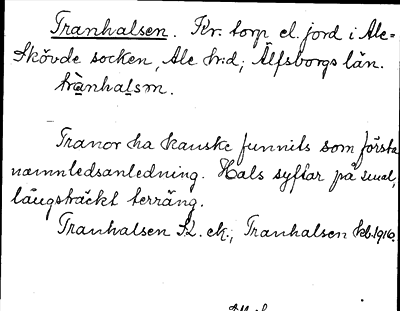 Tranhalsen. Kr. torp el. jord i Ale-
Skövde socken, Ale hrd; Älfsborgs län.
trànhalsm.
Tranor ha kanske funnits som första
namnledsanledning. Hals syftar på smal,
långsträckt terräng.
Tranhalsen Tranhalsen kb. 1916.